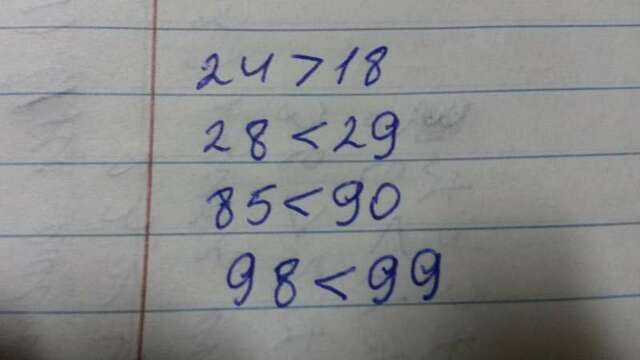 24 > 18
28 < 29
85 < 90
98 < 99